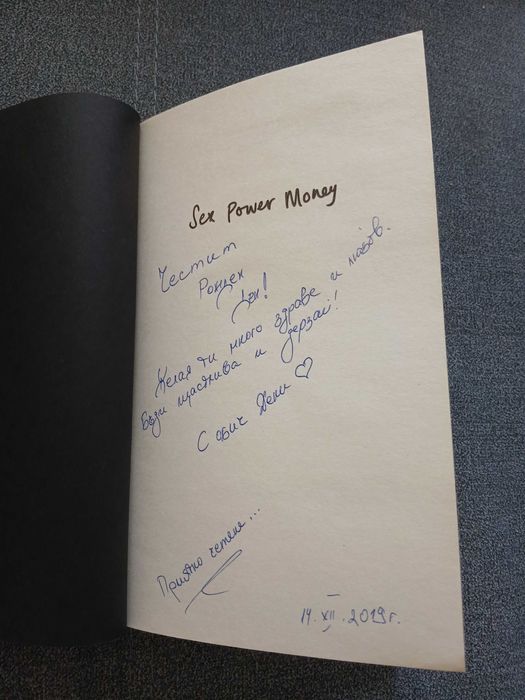 Sex Power Money
Честит
Рожден
Ден!
Желая ти много здраве и любов.
Бъди щастлива и дерзай!
С обич Дени ♡
Приятно четене...
14.XII.2019г.